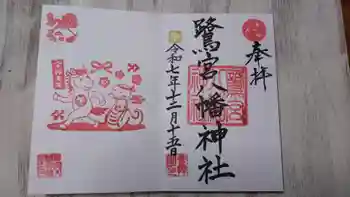 奉拝
鷺宮八幡神社
令和七年十二月十五日